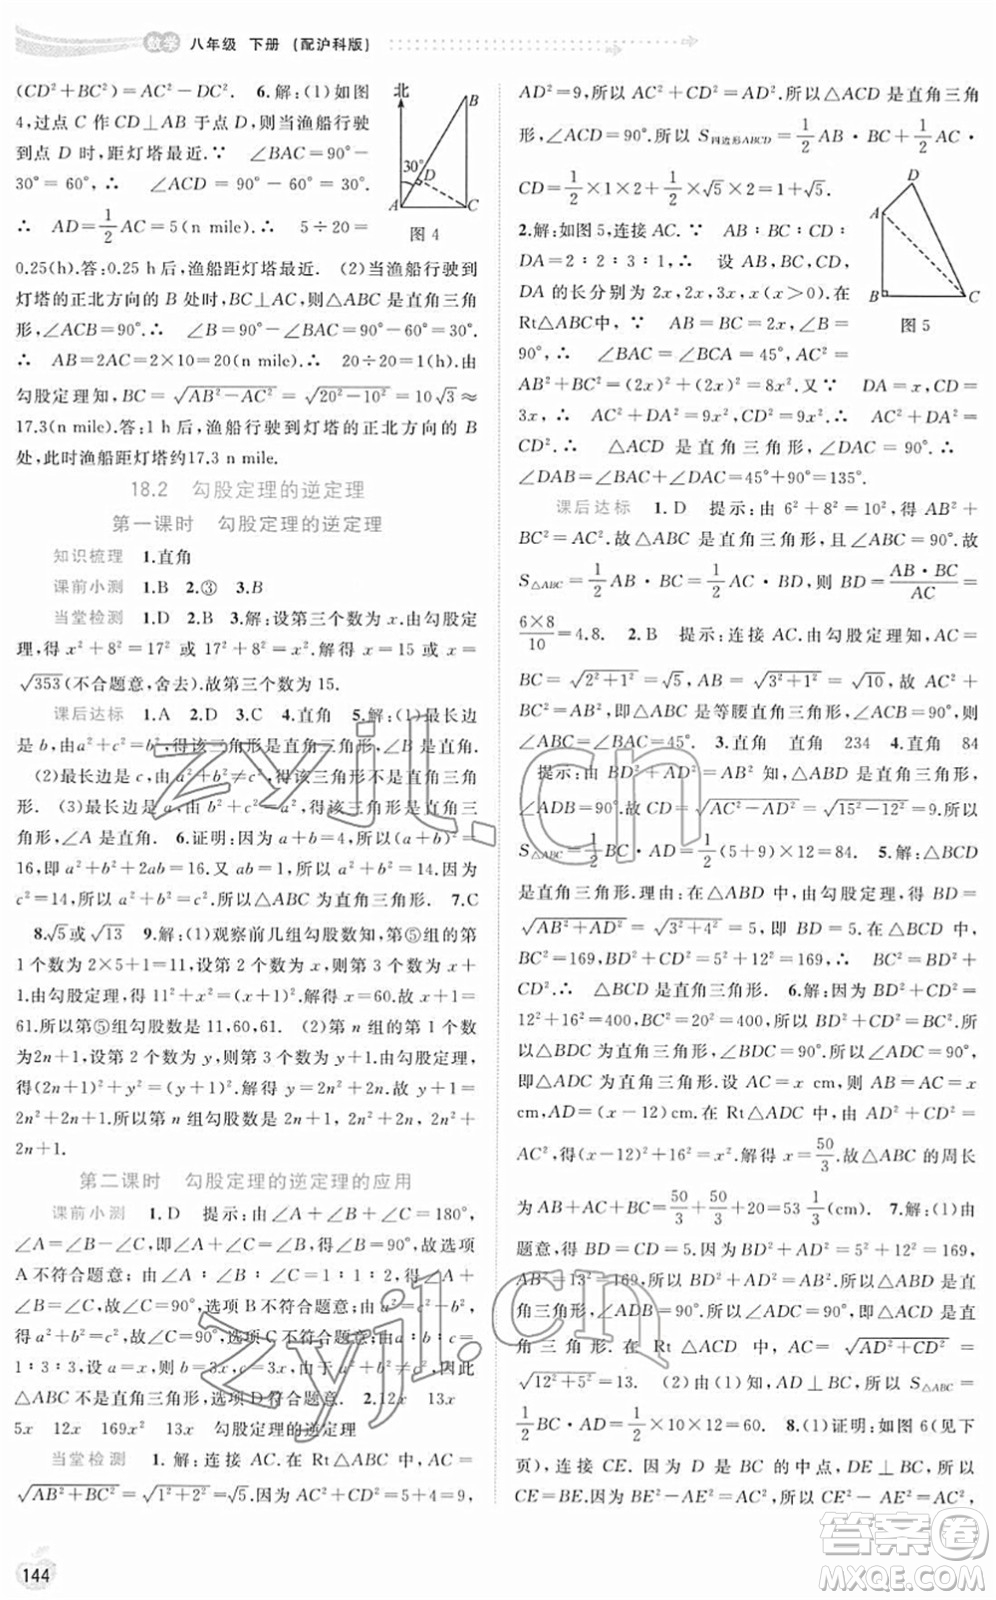 数学 八年级 下册 (配沪科版)
(CD²+BC²)=AC²-DC². 6.解:(1)如图
4,过点 C 作 CD⊥AB 于点 D,则当渔船行驶
到点 D 时,距灯塔最近.∵ ∠BAC=90°-
30°=60°,∴ ∠ACD=90°-60°=30°.
∴ AD=1/2AC=5(n mile).∴ 5÷20=
0.25(h).答:0.25 h 后,渔船距灯塔最近. (2)当渔船行驶到
灯塔的正北方向的 B 处时,BC⊥AC,则△ABC 是直角三角
形,∠ACB=90°.∴ ∠B=90°-∠BAC=90°-60°=30°.
∴ AB=2AC=2×10=20(n mile).∴ 20÷20=1(h).由
勾股定理知,BC=√(AB²-AC²)=√(20²-10²)=10√3≈
17.3(n mile).答:1 h 后,渔船行驶到灯塔的正北方向的 B
处,此时渔船距灯塔约17.3 n mile.
北
B
30°
D
A
C
图 4
18.2 勾股定理的逆定理
第一课时 勾股定理的逆定理
知识梳理 1.直角
课前小测 1.B 2.③ 3.B
当堂检测 1.D 2.B 3.解:设第三个数为 x.由勾股定
理,得 x²+8²=17² 或 17²+8²=x².解得 x=15 或 x=
√353(不合题意,舍去).故第三个数为 15.
课后达标 1.A 2.D 3.C 4.直角 5.解:(1)最长边
是 b,由 a²+c²=b²,得该三角形是直角三角形,∠B 是直角.
(2)最长边是 c,由 a²+b²≠c²,得该三角形不是直角三角
形. (3)最长边是 a,由 b²+c²=a²,得该三角形是直角三
角形,∠A 是直角. 6.证明:因为 a+b=4,所以(a+b)²=
16,即 a²+b²+2ab=16.又因为 ab=1,所以 a²+b²=14.又
c²=14,所以 a²+b²=c².所以△ABC为直角三角形. 7.C
8.√5或√13 9.解:(1)观察前几组勾股数知,第⑤组的第
1 个数为 2×5+1=11,设第 2 个数为 x,则第 3 个数为 x+
1.由勾股定理,得 11²+x²=(x+1)².解得 x=60.x+1=
61.所以第⑤组勾股数是 11,60,61. (2)第 n 组的第 1 个数
为2n+1,设第 2 个数为 y,则第 3 个数为 y+1.由勾股定理,
得(2n+1)²+y²=(y+1)².解得 y=2n²+2n.y+1=
2n²+2n+1.所以第 n 组勾股数是 2n+1, 2n²+2n, 2n²+
2n+1.
第二课时 勾股定理的逆定理的应用
课前小测 1.D 提示:由∠A+∠B+∠C=180°,
∠A=∠B-∠C,得∠A+∠C=∠B=90°,故选项
A 不符合题意;由∠A∶∠B∶∠C=1∶1∶2,得∠A+
∠B=∠C,故∠C=90°,选项 B 不符合题意;由 a²=c²-b²,
得 a²+b²=c²,故∠C=90°,选项 C 不符合题意;由 a∶b∶c=
1∶3∶3,设 a=x,则 b=3x,c=3x,由 a²+b²≠c²,知
△ABC 不是直角三角形,故选项 D 符合题意. 2.12x 13x
5x 12x 169x² 13x 勾股定理的逆定理
当堂检测 1.解:连接 AC.在 Rt△ABC 中,AC=
√(AB²+BC²)=√(1²+2²)=√5.因为 AC²+CD²=5+4=9,
AD²=9,所以 AC²+CD²=AD².所以△ACD 是直角三角
形,∠ACD=90°.所以 S四边形ABCD=1/2AB·BC+1/2AC·
CD=1/2×1×2+1/2×√5×2=1+√5.
2.解:如图 5,连接 AC.∵ AB∶BC∶CD∶
DA=2∶2∶3∶1,∴ 设 AB,BC,CD,
DA 的长分别为 2x,2x,3x,x(x>0).在
Rt△ABC中,∵ AB=BC=2x,∠B=
90°,∴ ∠BAC=∠BCA=45°,AC²=
AB²+BC²=(2x)²+(2x)²=8x².又∵ DA=x,CD=
3x,∴ AC²+DA²=9x²,CD²=9x².∴ AC²+DA²=
CD².∴ △ACD 是直角三角形,∠DAC=90°.∴
∠DAB=∠BAC+∠DAC=45°+90°=135°.
D
A
B
C
图 5
课后达标 1.D 提示:由 6²+8²=10²,得 AB²+
BC²=AC².所以△ABC 是直角三角形,且∠ABC=90°.故
S△ABC=1/2AB·BC=1/2AC·BD,则 BD=AB·BC/AC=
6×8/10=4.8. 2.B 提示:连接 AC.由勾股定理知,AC=
BC=√(2²+1²)=√5,AB=√(3²+1²)=√10,故 AC²+
BC²=AB²,即△ABC是等腰直角三角形,∠ACB=90°.故
∠ABC=∠BAC=45°. 3.直角 直角 234 4.直角 84
提示:由 BD²+AD²=AB² 知,△ABD 是直角三角形,
∠ADB=90°.故CD=√(AC²-AD²)=√(15²-12²)=9.所以
S△ABC=1/2BC·AD=1/2(5+9)×12=84. 5.解:△BCD
是直角三角形.理由:在△ABD 中,由勾股定理,得 BD=
√(AB²+AD²)=√(3²+4²)=5,即 BD²=5².∵ CD²=12²,
BC²=169,BD²+CD²=5²+12²=169,∴ BC²=BD²+
CD².∴ △BCD 是直角三角形. 6.解:因为 BD²+CD²=
12²+16²=400,BC²=20²=400,所以 BD²+CD²=BC².所
以△BDC 为直角三角形,∠BDC=90°.所以∠ADC=90°.
设 AB=x cm,则 AC=x cm,AD=(x-12)cm.在 Rt△ADC 中,由 AD²+CD²=
AC²,得(x-12)²+16²=x².解得 x=50/3.故△ABC 的周长
为AB+AC+BC=50/3+50/3+20=53 1/3(cm). 7.解:(1)由
题意,得 BD=CD=5.因为 BD²+AD²=5²+12²=169,
AB²=13²=169,所以 BD²+AD²=AB².所以△ABD 是直
角三角形,∠ADB=90°.所以∠ADC=90°,即△ACD 是直角
三角形. (2)在 Rt△ACD 中,AC=√(AD²+CD²)=
√(12²+5²)=13. (3)由(1)知,AD⊥BC,所以 S△ABC=
1/2BC·AD=1/2×10×12=60. 8.(1)证明:如图 6(见下
页),连接 CE.因为 D 是 BC 的中点,DE⊥BC,所以
CE=BE.因为 BE²-AE²=AC²,所以CE²-AE²=AC²,
144
zyjl.cn
zyjl.cn
答案圈
MXQE.COM